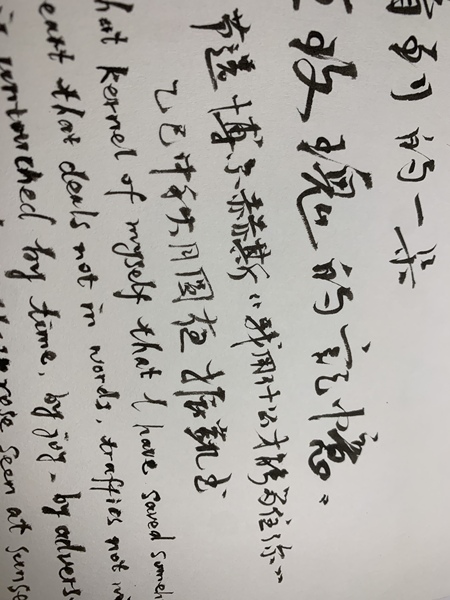 到的一朵
玫瑰的记忆。
节选博尔赫斯《我用什么才能留住你》
乙巳中秋月圆夜振
hat kernel of myself that I have saved someh
eart that deals not in words, traffics not in
untouched by time, by joy, by advers
rose seen at sunse